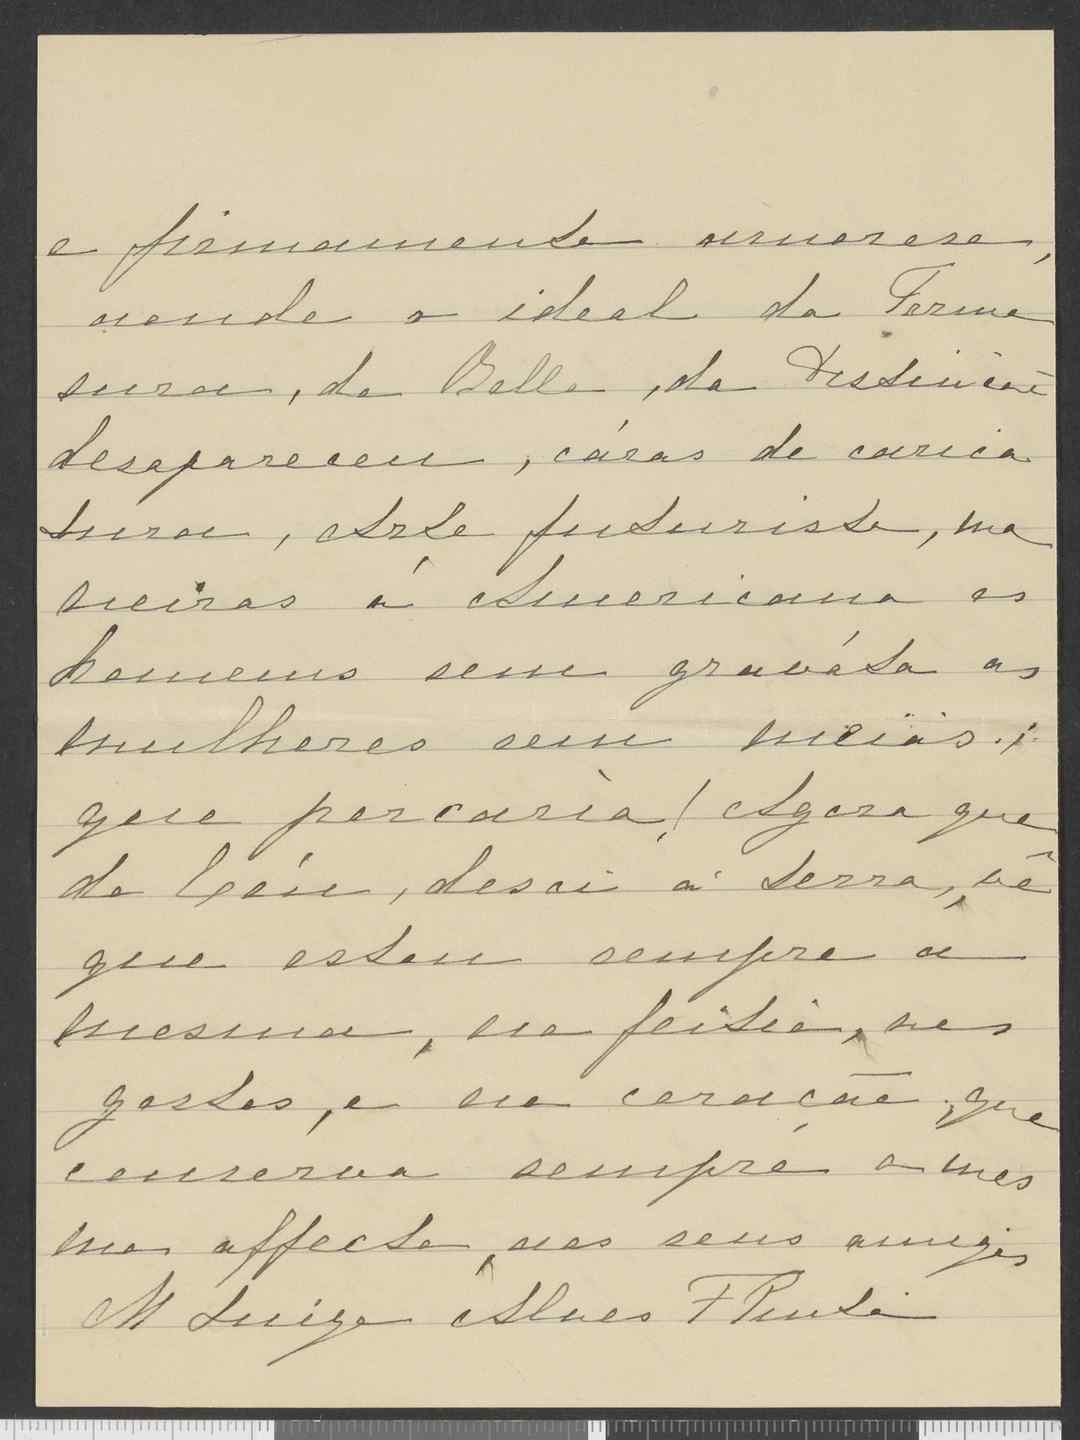 o firmamento
aonde o ideal da Formo
sura, do Bello, da Distincão
desapareceu, cáras de carica
tura, Arte futurista, ma
neiras á Americana os
homens sem graváta as
mulheres sem meias.;
que porcaria! Agora que
do Céu, desci á terra, vê
que estou sempre a
mesma, no feitio, nos
gostos, e no coração, que
conserva sempre o mes
mo affecto, aos seus amigos
M Luiza Alves